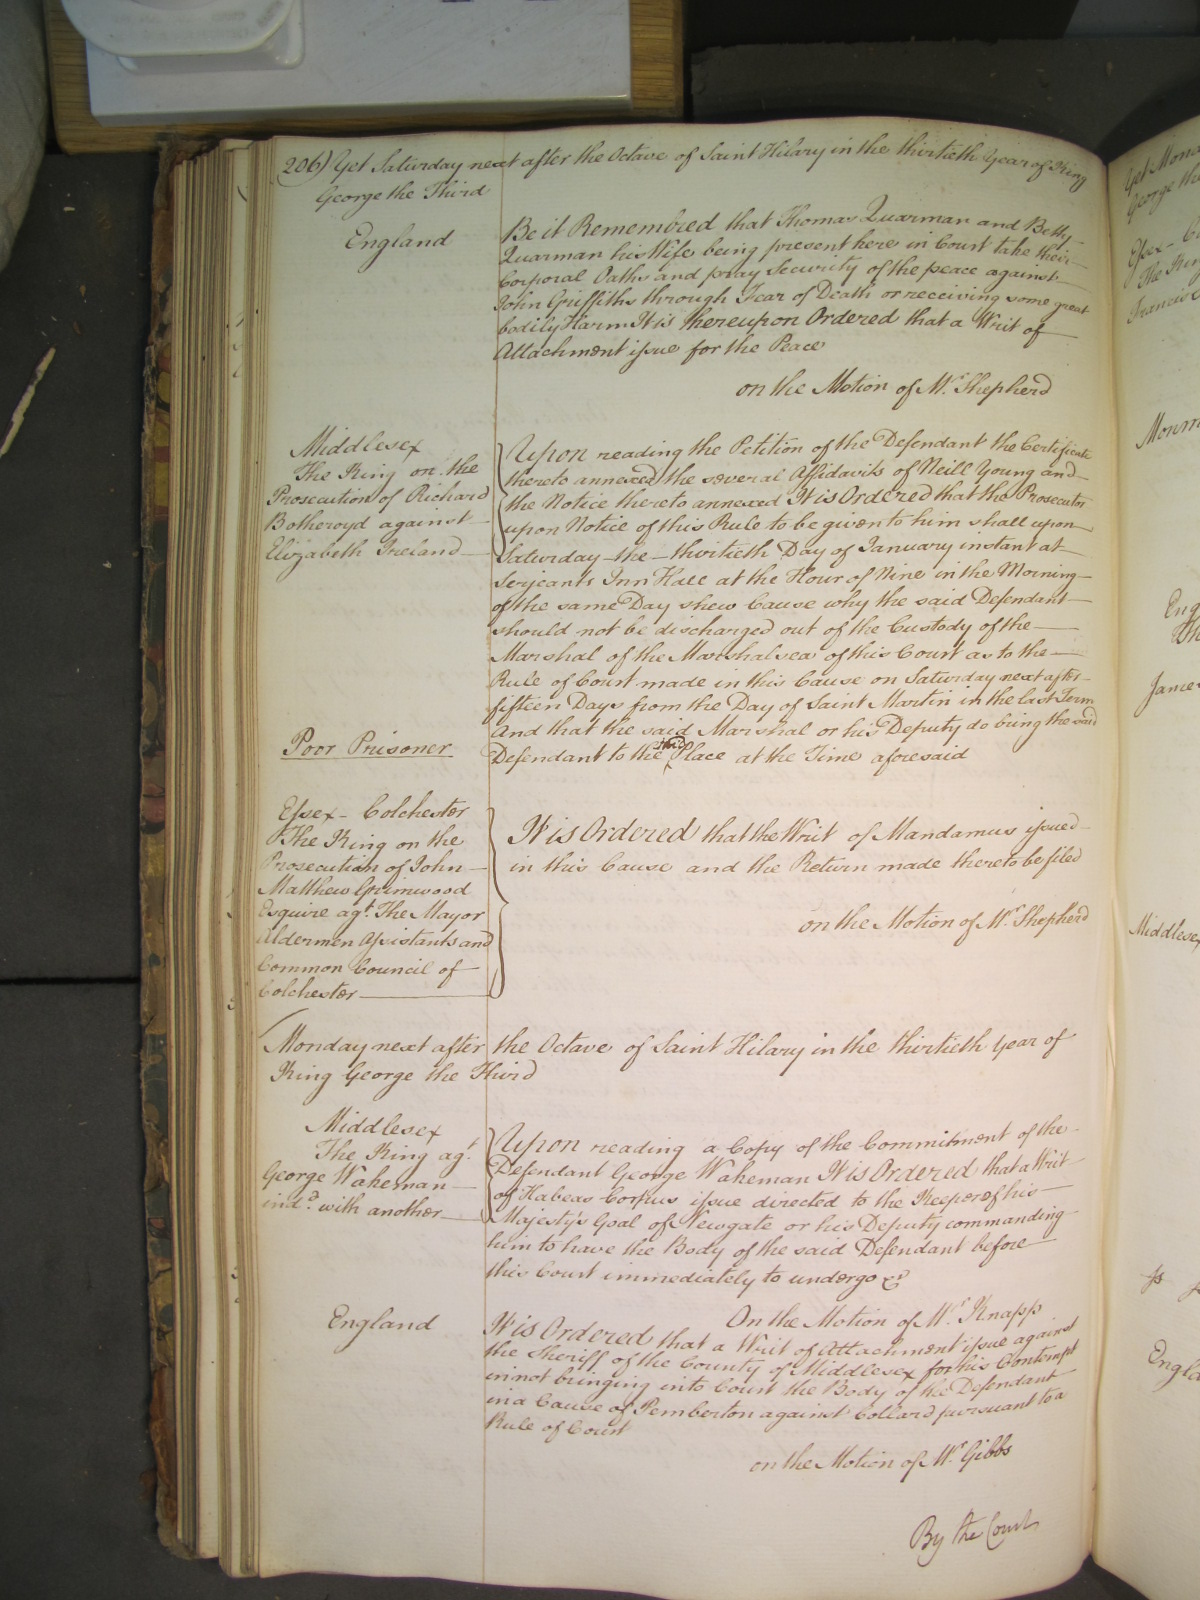 206) Yet Saturday next after the Octave of Saint Hilary in the thirtieth Year of King
George the Third
England
Be it Remembred that Thomas Quarman and Betty
Quarman his Wife being present here in Court take their
Corporal Oaths and pray Security of the peace against
John Griffiths through Fear of Death or receiving some great
bodily Harm It is thereupon Ordered that a Writ of
Attachment issue for the Peace
on the Motion of Mr. Shepherd
Middlesex
The King on the
Prosecution of Richard
Botheroyd against
Elizabeth Ireland
Upon reading the Petition of the Defendant the Certificate
thereto annexed the several Affidavits of Neill Young and
the Notice thereto annexed It is Ordered that the Prosecutor
upon Notice of this Rule to be given to him shall upon
Saturday the thirtieth Day of January instant at
Serjeants Inn Hall at the Hour of Nine in the Morning
of the same Day shew Cause why the said Defendant
should not be discharged out of the Custody of the
Marshal of the Marshalsea of this Court as to the
Rule of Court made in this Cause on Saturday next after
fifteen Days from the Day of Saint Martin in the last Term
And that the said Marshal or his Deputy do bring the said
Poor Prisoner
Defendant to the said Place at the Time aforesaid
Essex - Colchester
The King on the
Prosecution of John
Matthew Grimwood
Esquire agt. The Mayor
Aldermen Assistants and
Common Council of
Colchester
It is Ordered that the Writ of Mandamus issued
in this Cause and the Return made thereto be filed
on the Motion of Mr. Shepherd
Monday next after the Octave of Saint Hilary in the thirtieth Year of
King George the Third
Middlesex
The King agt.
George Wakeman
indd. with another
Upon reading a Copy of the Commitment of the
Defendant George Wakeman It is Ordered that a Writ
of Habeas Corpus issue directed to the Keeper of his
Majesty's Goal of Newgate or his Deputy commanding
him to have the Body of the said Defendant before
this Court immediately to undergo &c
On the Motion of Mr. Knapp
England
It is Ordered that a Writ of Attachment issue against
the Sheriff of the County of Middlesex for his Contempt
in not bringing into Court the Body of the Defendant
in a Cause of Pemberton against Collard pursuant to a
Rule of Court
on the Motion of Mr. Gibbs
By the Court
Yet Mon
George the
Essex
The King
Francis
Middlesex
James